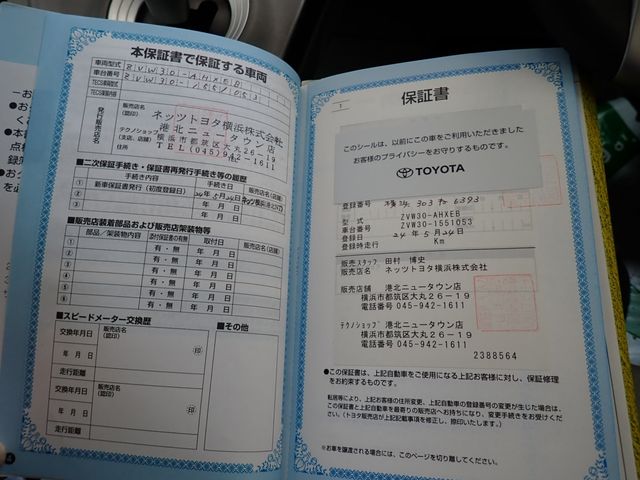 本保証書で保証する車両
車両型式 ZVW30-AHXEB
車台番号 ZVW30-1551053
発行販売店名
販売店名
(認印)
ネッツトヨタ横浜株式会社
テクノショップ名
(支店、店舗)
港北ニュータウン店
住所
横浜市都筑区大丸26-19
TEL(045)942-1611
■二次保証手続き・保証書再発行手続き等の履歴
手続き内容 手続き日 販売店名(店舗)
① 新車保証書発行(初度登録日) 24年5月24日
② 年 月 日
③ 年 月 日
■販売店装着部品および販売店架装物等
部品/架装物内容 添付保証書の有無 取付日 販売店名(店舗)
① 有・無 年 月 日
② 有・無 年 月 日
③ 有・無 年 月 日
④ 有・無 年 月 日
⑤ 有・無 年 月 日
⑥ 有・無 年 月 日
■スピードメーター交換歴
■その他
交換年月日 販売店名
(認印)
年 月 日 印
走行距離
交換年月日 販売店名
(認印)
年 月 日 印
走行距離
保証書
1
このシールは、以前にこの車をご利用いただきました
お客様のプライバシーをお守りするものです。
TOYOTA
登録番号 303 6393
型式 ZVW30-AHXEB
車台番号 ZVW30-1551053
登録日 24年5月24日
登録時走行 Km
販売スタッフ 田村 博史
販売店名 ネッツトヨタ横浜株式会社
販売店舗 港北ニュータウン店
横浜市都筑区大丸26-19
電話番号 045-942-1611
テクノショップ 港北ニュータウン店
横浜市都筑区大丸26-19
電話番号 045-942-1611
2388564
●この保証書は、上記自動車をご使用になる上記お客様に対し、保証修理
をお約束するものです。
転居等により、上記お客様の住所変更、上記自動車の登録番号の変更が生じた場合は、
この保証書と上記自動車を最寄りの販売店へお持ちになり、変更手続きをお受けくだ
さい。(トヨタ販売店が上記記載事項を修正し、捺印いたします。)
※お車を譲渡される場合には、このページを切り離してください。